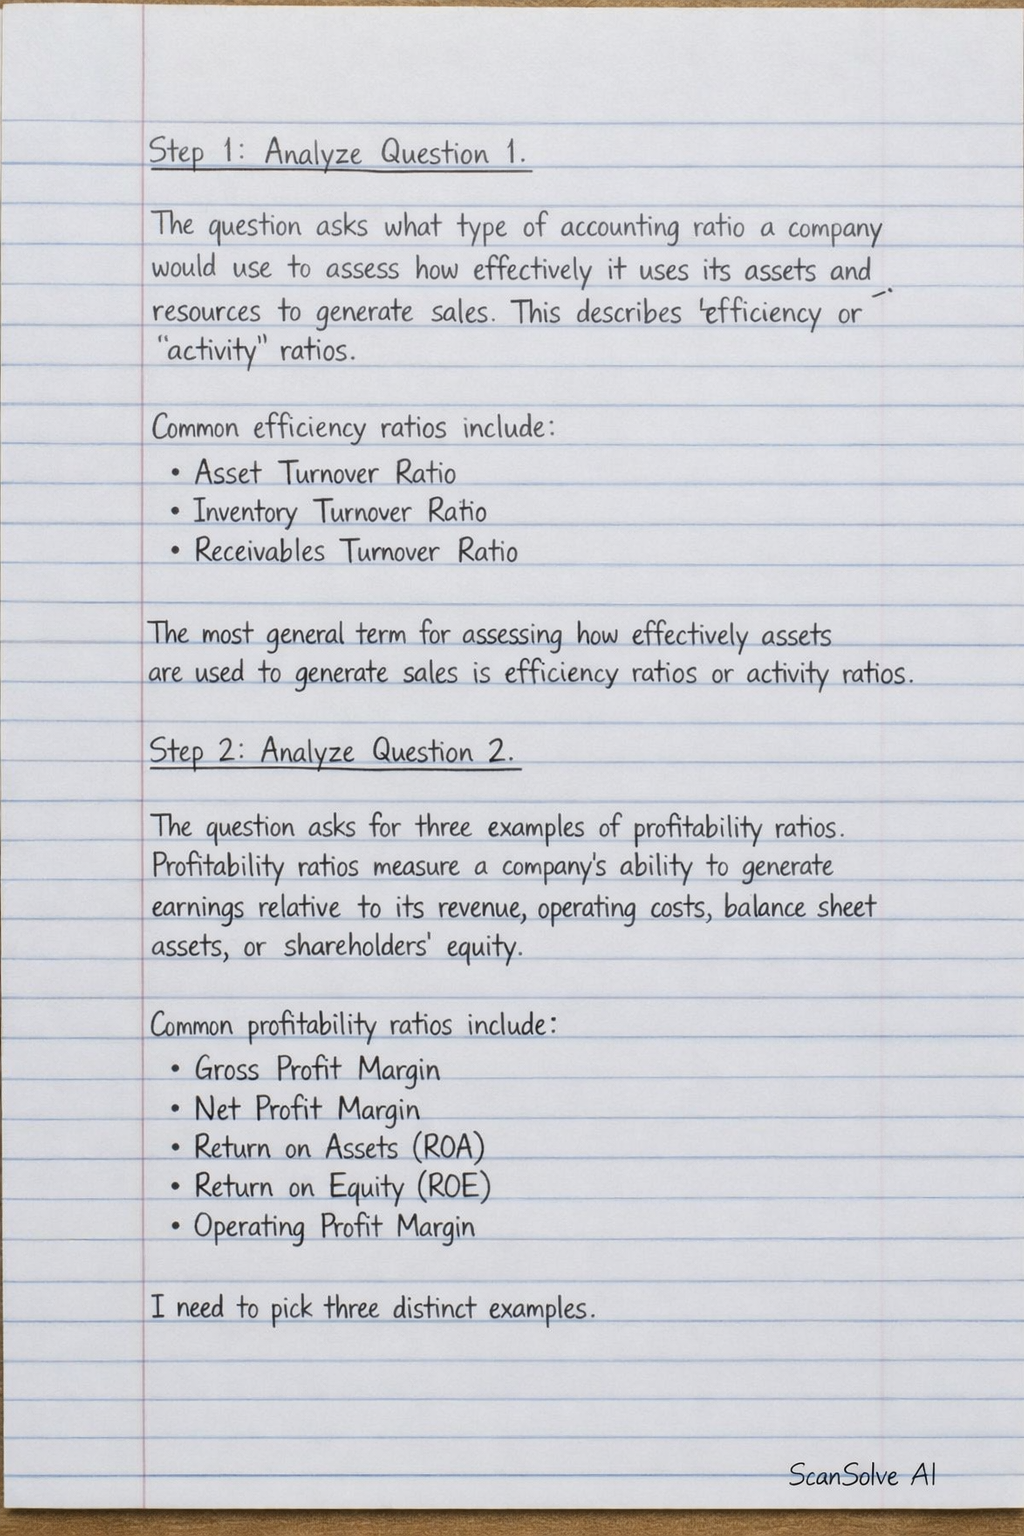 Step 1: Analyze Question 1.
The question asks what type of accounting ratio a company
would use to assess how effectively it uses its assets and
resources to generate sales. This describes 'efficiency or
"activity" ratios.
Common efficiency ratios include:
• Asset Turnover Ratio
• Inventory Turnover Ratio
• Receivables Turnover Ratio
The most general term for assessing how effectively assets
are used to generate sales is efficiency ratios or activity ratios.
Step 2: Analyze Question 2.
The question asks for three examples of profitability ratios.
Profitability ratios measure a company's ability to generate
earnings relative to its revenue, operating costs, balance sheet
assets, or shareholders' equity.
Common profitability ratios include:
• Gross Profit Margin
• Net Profit Margin
• Return on Assets (ROA)
• Return on Equity (ROE)
• Operating Profit Margin
I need to pick three distinct examples.
ScanSolve AI